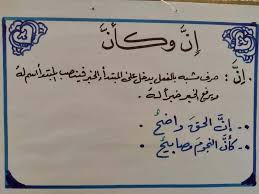 إنَّ وكأنَّ
إنَّ : حرف مشبه بالفعل يدخل على المبتدأ والخبر فينصب المبتدأ اسم له
ويرفع الخبر خبراً له
- إنَّ الحقَ واضحٌ
- كأنَّ النجومَ مصابيحٌ